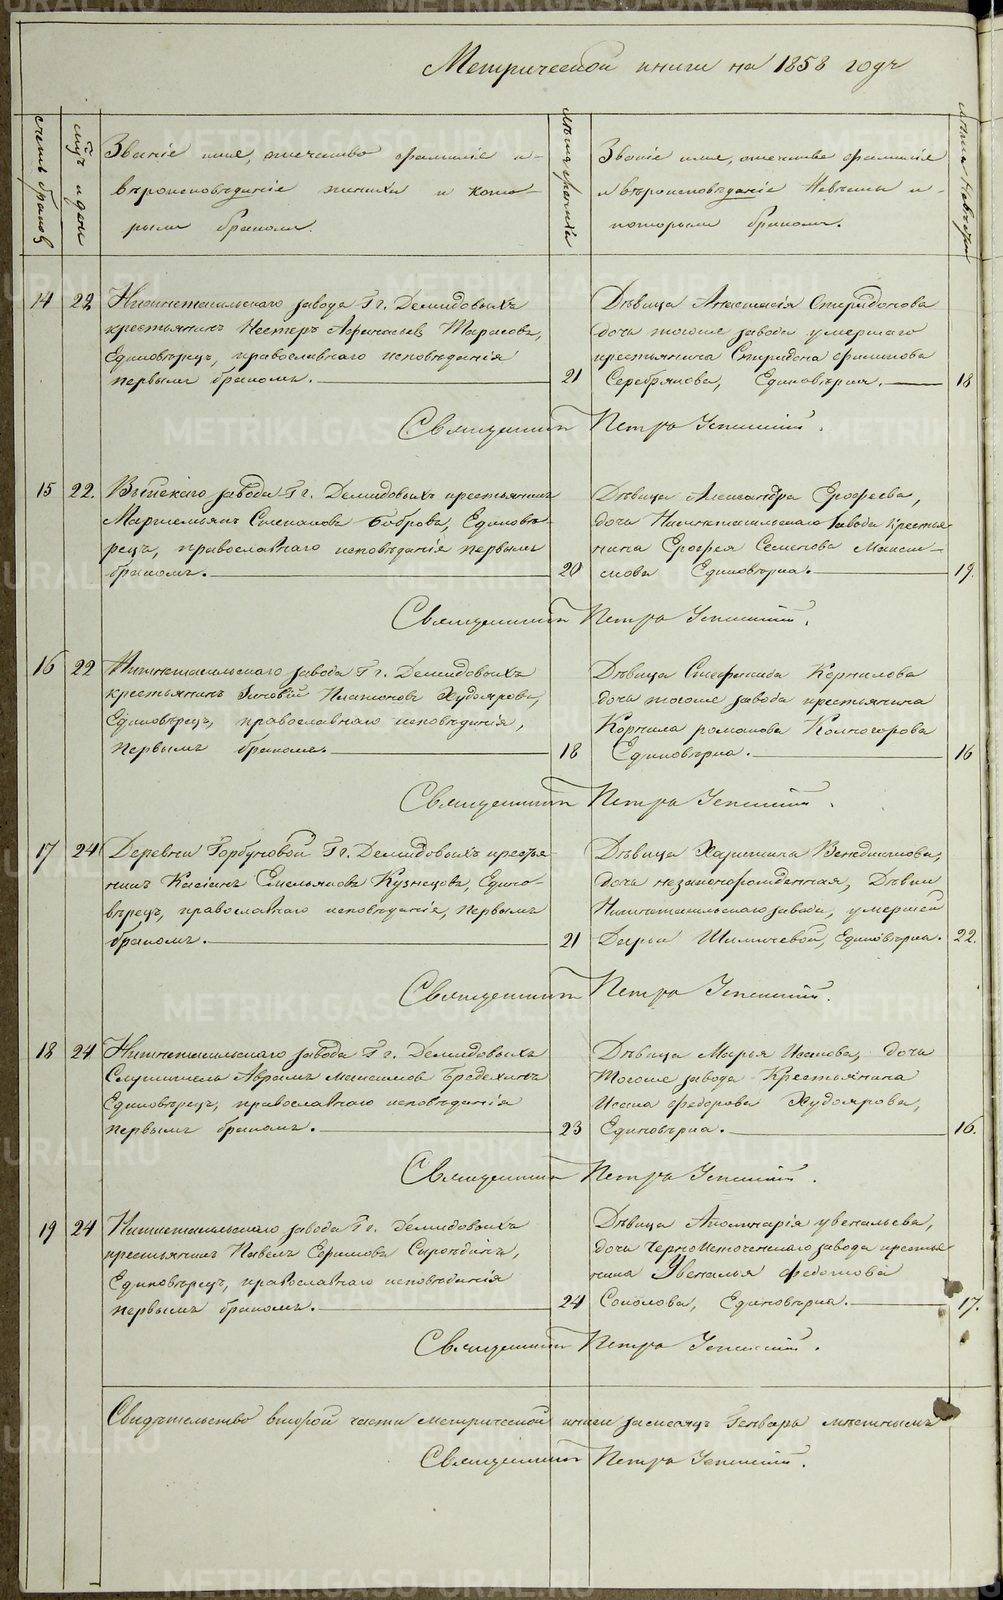 Метрической книги на 1858 годъ
счетъ браковъ
мѣсяцъ и день
Званіе имя, отчество фамилія и
вѣроисповѣданіе жениха и кото-
рымъ бракомъ.
лѣта жениха
Званіе имя, отечество фамилія
и вѣроисповѣданіе Невѣсты и
которымъ бракомъ.
лѣта Невѣсты
14 22 Нижнетагильскаго завода Гг. Демидовыхъ
крестьянинъ Нестеръ Тарасовъ,
Единовѣрецъ, православнаго исповѣданія
первымъ бракомъ. 21
Дѣвица Анастасія Спиридонова
дочь тогоже завода умершаго
крестьянина Спиридона филипова
Серебрякова, Единовѣрка. 18
Священникъ Петръ Успенскій.
15 22. Выйскаго завода Гг. Демидовыхъ крестьянинъ
Степановъ Бобровъ, Единовѣ-
рецъ, православнаго исповѣданія первымъ
бракомъ. 20
Дѣвица Александра Ерофеева,
дочь Нижнетагильскаго завода крестья
нина Ерофея Семенова Макси-
мова Единовѣрка. 19.
Священникъ Петръ Успенскій.
16 22 Нижнетагильскаго завода Гг. Демидовыхъ
крестьянинъ Зиновій Платоновъ Худояровъ,
Единовѣрецъ, православнаго исповѣданія,
первымъ бракомъ. 18
Дѣвица Стефанида Корнилова
дочь тогоже завода крестьянина
Корнила романова Колногорова
Единовѣрка. 16
Священникъ Петръ Успенскій.
17 24 Деревни Горбуновой Гг. Демидовыхъ крестья
нинъ Касіанъ Емельяновъ Кузнецовъ, Едино-
вѣрецъ, православнаго исповѣданія, первымъ
бракомъ. 21
Дѣвица Харитина Венедиктова,
дочь незаконорожденная, Дѣвки
Нижнетагильскаго завода, умершей
Дарьи Шиличевой, Единовѣрка. 22.
Священникъ Петръ Успенскій.
18 24 Нижнетагильскаго завода Гг. Демидовыхъ
Служитель Аврамъ Максимовъ Бредехинъ
Единовѣрецъ, православнаго исповѣданія
первымъ бракомъ. 23
Дѣвица Марья Исакова, дочь
Тогоже завода Крестьянина
Исака федорова Худоярова,
Единовѣрка. 16.
Священникъ Петръ Успенскій.
19 24 Нижнетагильскаго завода Гг. Демидовыхъ
крестьянинъ Павелъ Ефимовъ Сыроѣдинъ,
Единовѣрецъ, православнаго исповѣданія
первымъ бракомъ. 24
Дѣвица Аполинарія увенальева,
дочь Черноисточенскаго завода крестья
нина Увеналья федотова
Соколова, Единовѣрка. 17.
Священникъ Петръ Успенскій.
Свидѣтельство второй части метрической книги за месяцъ Генварь
Священникъ Петръ Успенскій.
METRIKI.GASO-URAL.RU